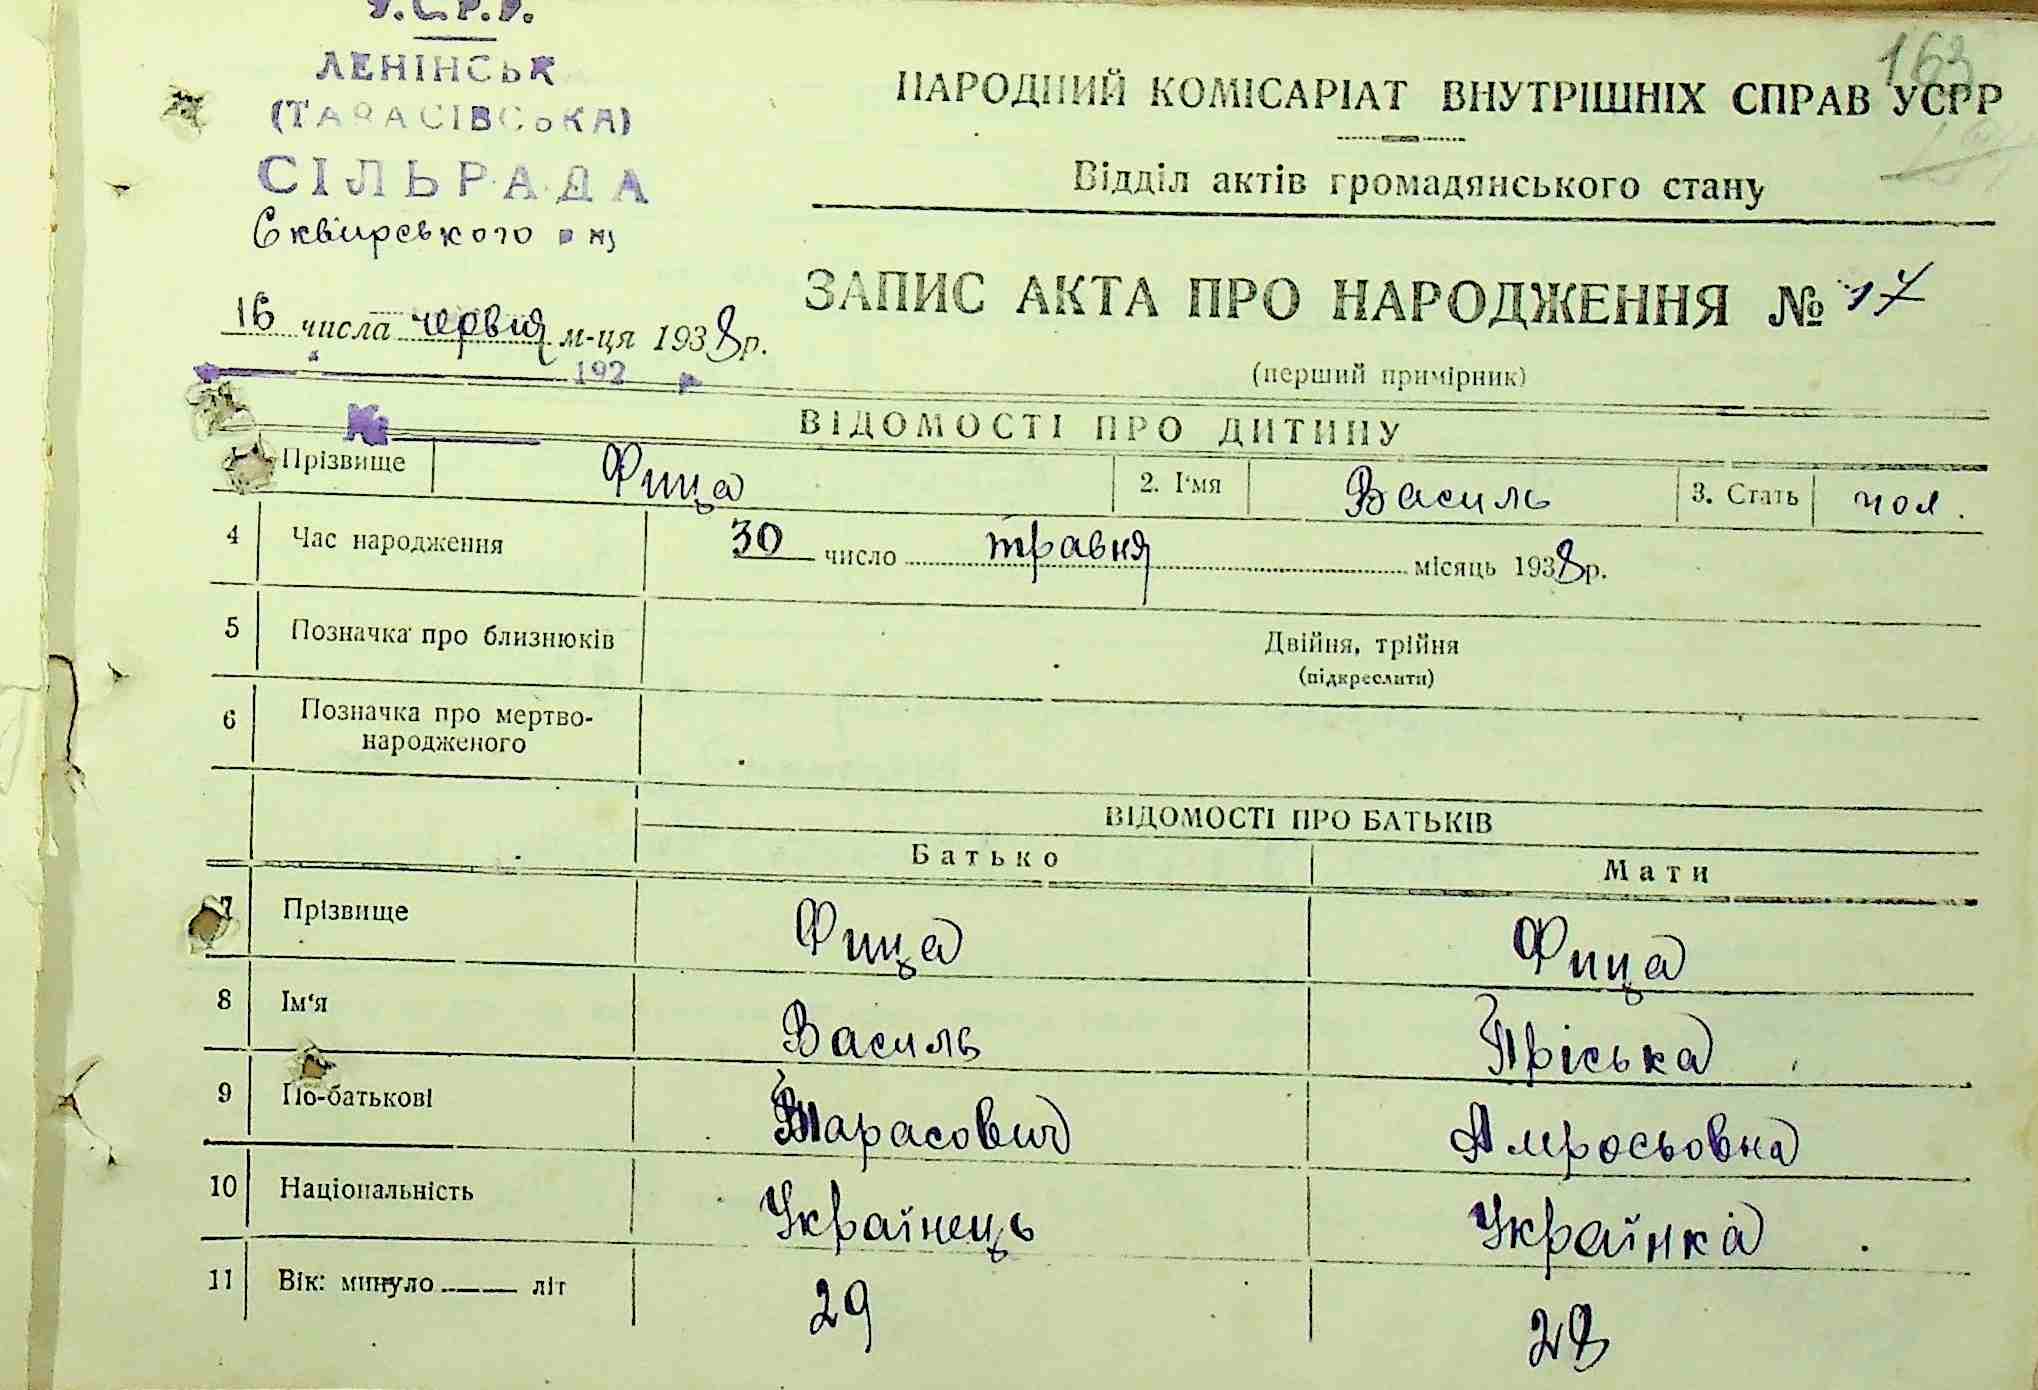 У.С.Р.Р.
ЛЕНІНСЬК
(ТАРАСІВСЬКА)
СІЛЬРАДА
Сквирського р ну
163
НАРОДНИЙ КОМІСАРІАТ ВНУТРІШНІХ СПРАВ УСРР
Відділ актів громадянського стану
ЗАПИС АКТА ПРО НАРОДЖЕННЯ № 17
16 числа червня м-ця 1938 р.
(перший примірник)
192
№
ВІДОМОСТІ ПРО ДИТИНУ
Прізвище Фица 2. І'мя Василь 3. Стать чол.
4 Час народження 30 число травня місяць 1938 р.
5 Позначка про близнюків Двійня, трійня
(підкреслити)
6 Позначка про мертво-
народженого
ВІДОМОСТІ ПРО БАТЬКІВ
Батько Мати
7 Прізвище Фица Фица
8 Ім'я Василь Пріська
9 По-батькові Тарасович Амросьовна
10 Національність Українець Українка
11 Вік: минуло ____ літ 29 28